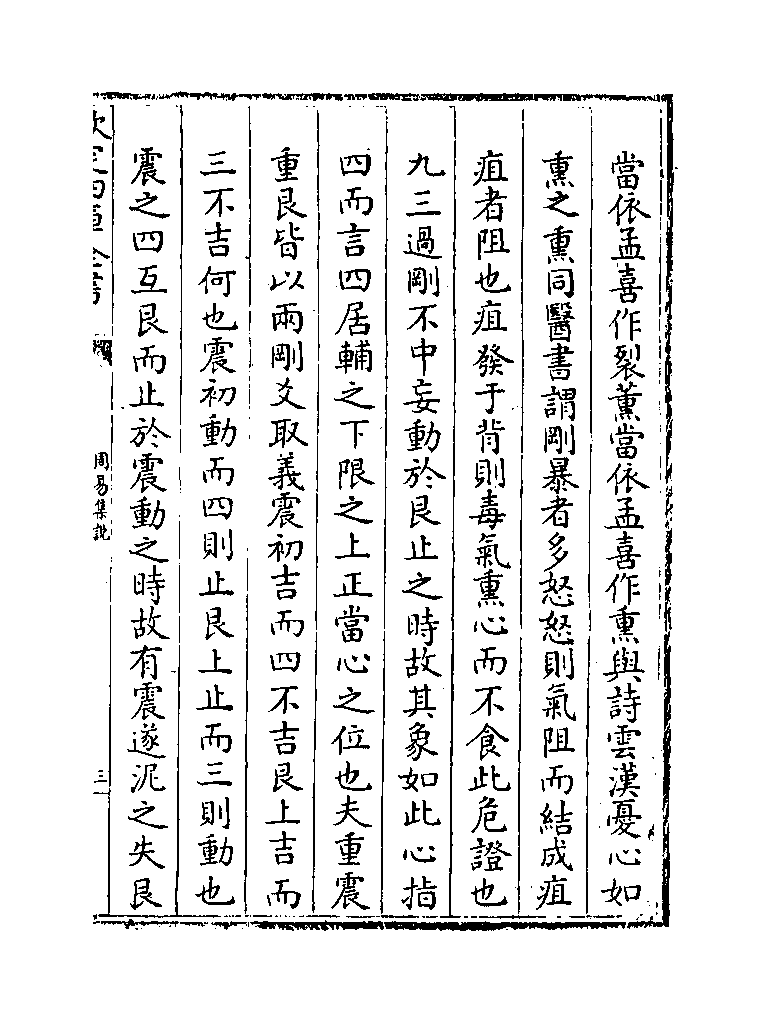 當依孟喜作裂薰當依孟喜作熏與詩雲漢憂心如
熏之熏同醫書謂剛暴者多怒怒則氣阻而結成疽
疽者阻也疽發于背則毒氣熏心而不食此危證也
九三過剛不中妄動於艮止之時故其象如此心指
四而言四居輔之下限之上正當心之位也夫重震
重艮皆以兩剛爻取義震初吉而四不吉艮上吉而
三不吉何也震初動而四則止艮上止而三則動也
震之四互艮而止於震動之時故有震遂泥之失艮
周易集說